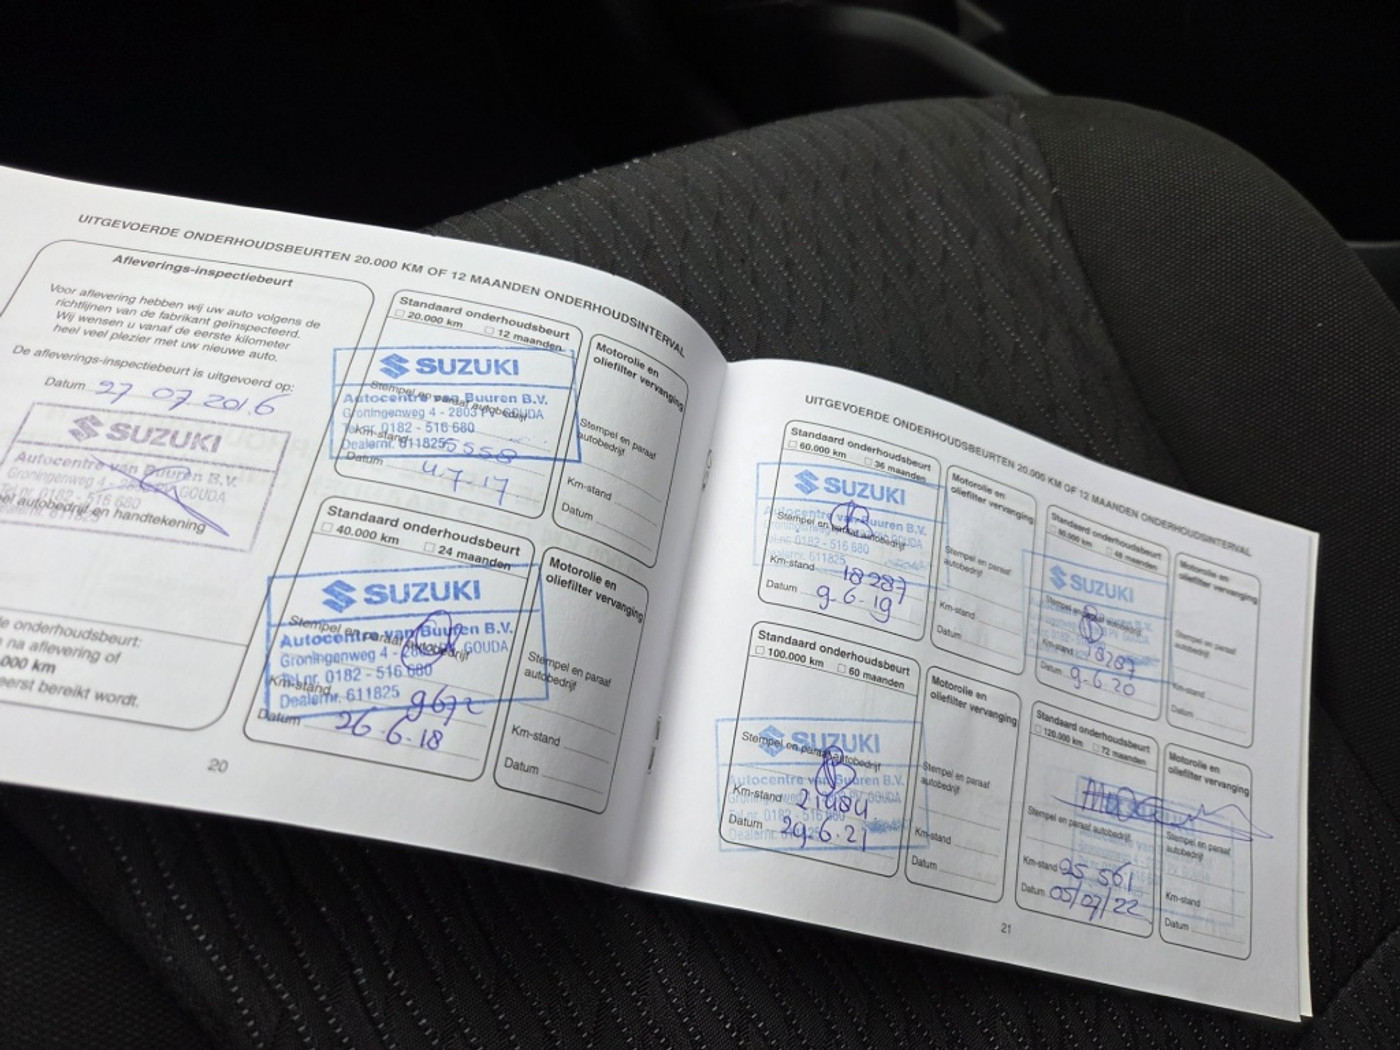 UITGEVOERDE ONDERHOUDSBEURTEN 20.000 KM OF 12 MAANDEN ONDERHOUDSINTERVAL
Afleverings-inspectiebeurt
Voor aflevering hebben wij uw auto volgens de
richtlijnen van de fabrikant geïnspecteerd.
Wij wensen u vanaf de eerste kilometer
heel veel plezier met uw nieuwe auto.
De afleverings-inspectiebeurt is uitgevoerd op:
Datum 27 07 2016
SUZUKI
Autocentre van Buuren B.V.
Groningenweg 4 - GOUDA
Tel.nr. 0182 - 516 680
autobedrijf en handtekening
611825
e onderhoudsbeurt:
na aflevering of
.000 km
eerst bereikt wordt.
20
Standaard onderhoudsbeurt
20.000 km 12 maanden
SUZUKI
Stempel en paraaf autobedrijf
Autocentre van Buuren B.V.
Groningenweg 4 - 2803 PV GOUDA
Tel.nr. 0182 - 516 680
Km-stand 5558
Dealernr. 611825
Datum 4.7.17
Motorolie en
oliefilter vervanging
Stempel en paraaf
autobedrijf
Km-stand
Datum
Standaard onderhoudsbeurt
40.000 km 24 maanden
SUZUKI
Stempel en paraaf autobedrijf
Autocentre van Buuren B.V.
Groningenweg 4 - GOUDA
Tel.nr. 0182 - 516 680
Km-stand 9672
Dealernr. 611825
Datum 26-6-18
Motorolie en
oliefilter vervanging
Stempel en paraaf
autobedrijf
Km-stand
Datum
UITGEVOERDE ONDERHOUDSBEURTEN 20.000 KM OF 12 MAANDEN ONDERHOUDSINTERVAL
Standaard onderhoudsbeurt
60.000 km 36 maanden
SUZUKI
Stempel en paraaf autobedrijf
Autocentre van Buuren B.V.
Tel.nr. 0182 - 516 680
Dealernr. 611825
Km-stand 18287
Datum 9-6-19
Motorolie en
oliefilter vervanging
Stempel en paraaf
autobedrijf
Km-stand
Datum
Standaard onderhoudsbeurt
80.000 km 48 maanden
SUZUKI
Stempel en paraaf autobedrijf
Km-stand 18287
Datum 9-6-20
Motorolie en
oliefilter vervanging
Stempel en paraaf
autobedrijf
Km-stand
Datum
Standaard onderhoudsbeurt
100.000 km 60 maanden
SUZUKI
Stempel en paraaf autobedrijf
Autocentre van Buuren B.V.
GOUDA
Km-stand 21484
Tel.nr. 0182 - 516 680
Datum 29-6-21
Motorolie en
oliefilter vervanging
Stempel en paraaf
autobedrijf
Km-stand
Datum
Standaard onderhoudsbeurt
120.000 km 72 maanden
Stempel en paraaf autobedrijf
Km-stand 25 561
Datum 05/07/22
Motorolie en
oliefilter vervanging
Stempel en paraaf
autobedrijf
Km-stand
Datum
21